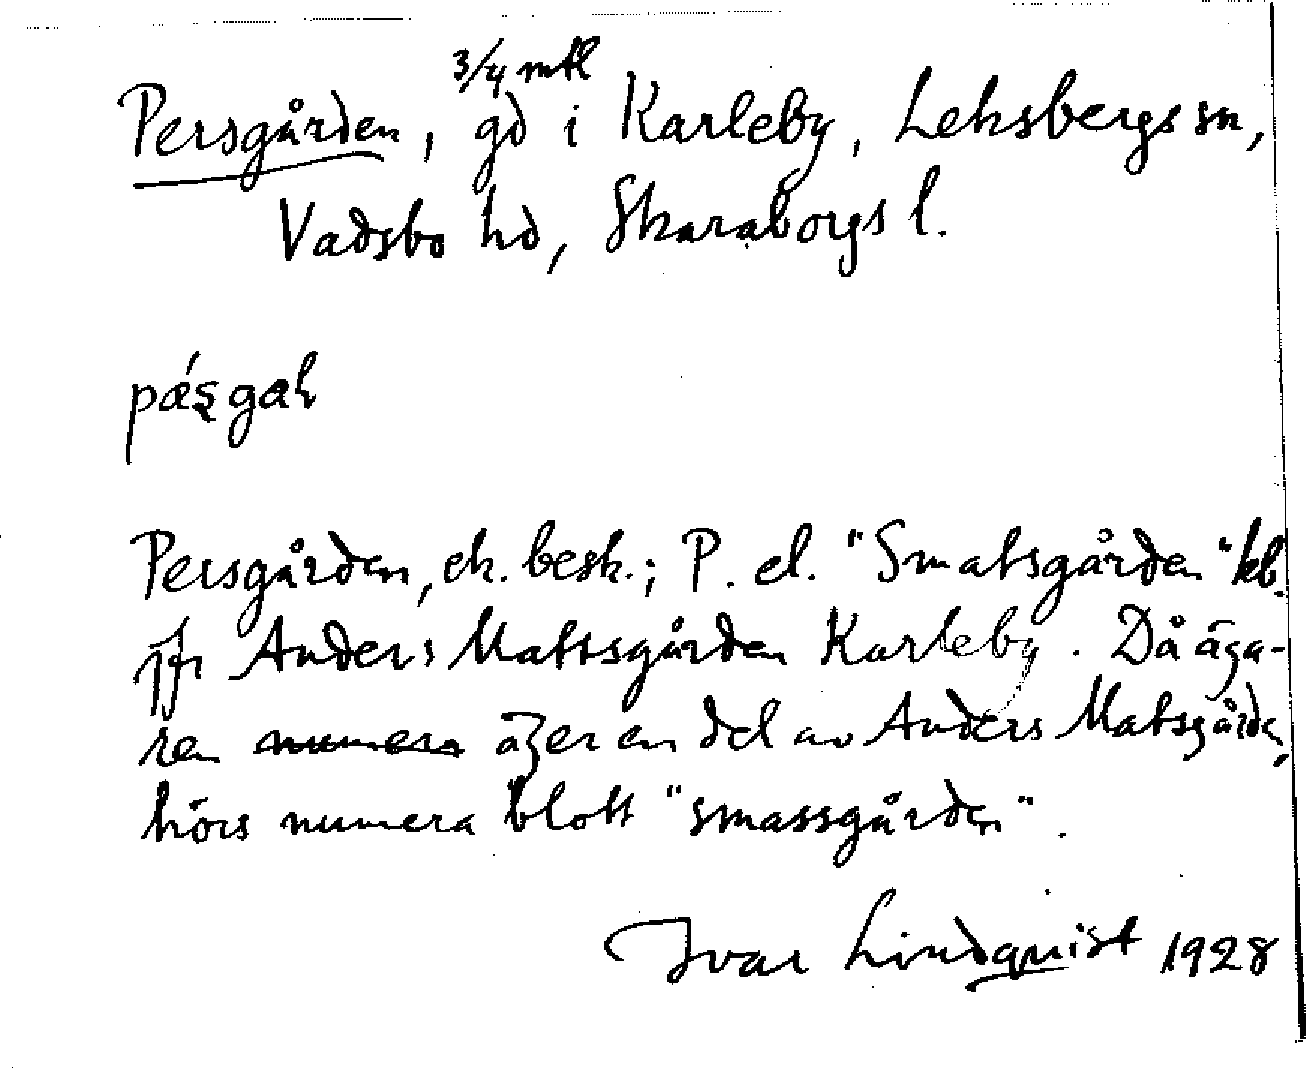 3/4 mtl
Persgården, gd i Karleby, Leksbergs sn,
Vadsbo hd, Skaraborgs l.
Persgården, ek. besk.; P. el. "Smatsgården" kb.
jfr Anders Matssgården Karleby. Då äga-
ren numera äger en del av Anders Matsgården,
hörs numera blott "smassgården".
Ivar Lindquist 1928